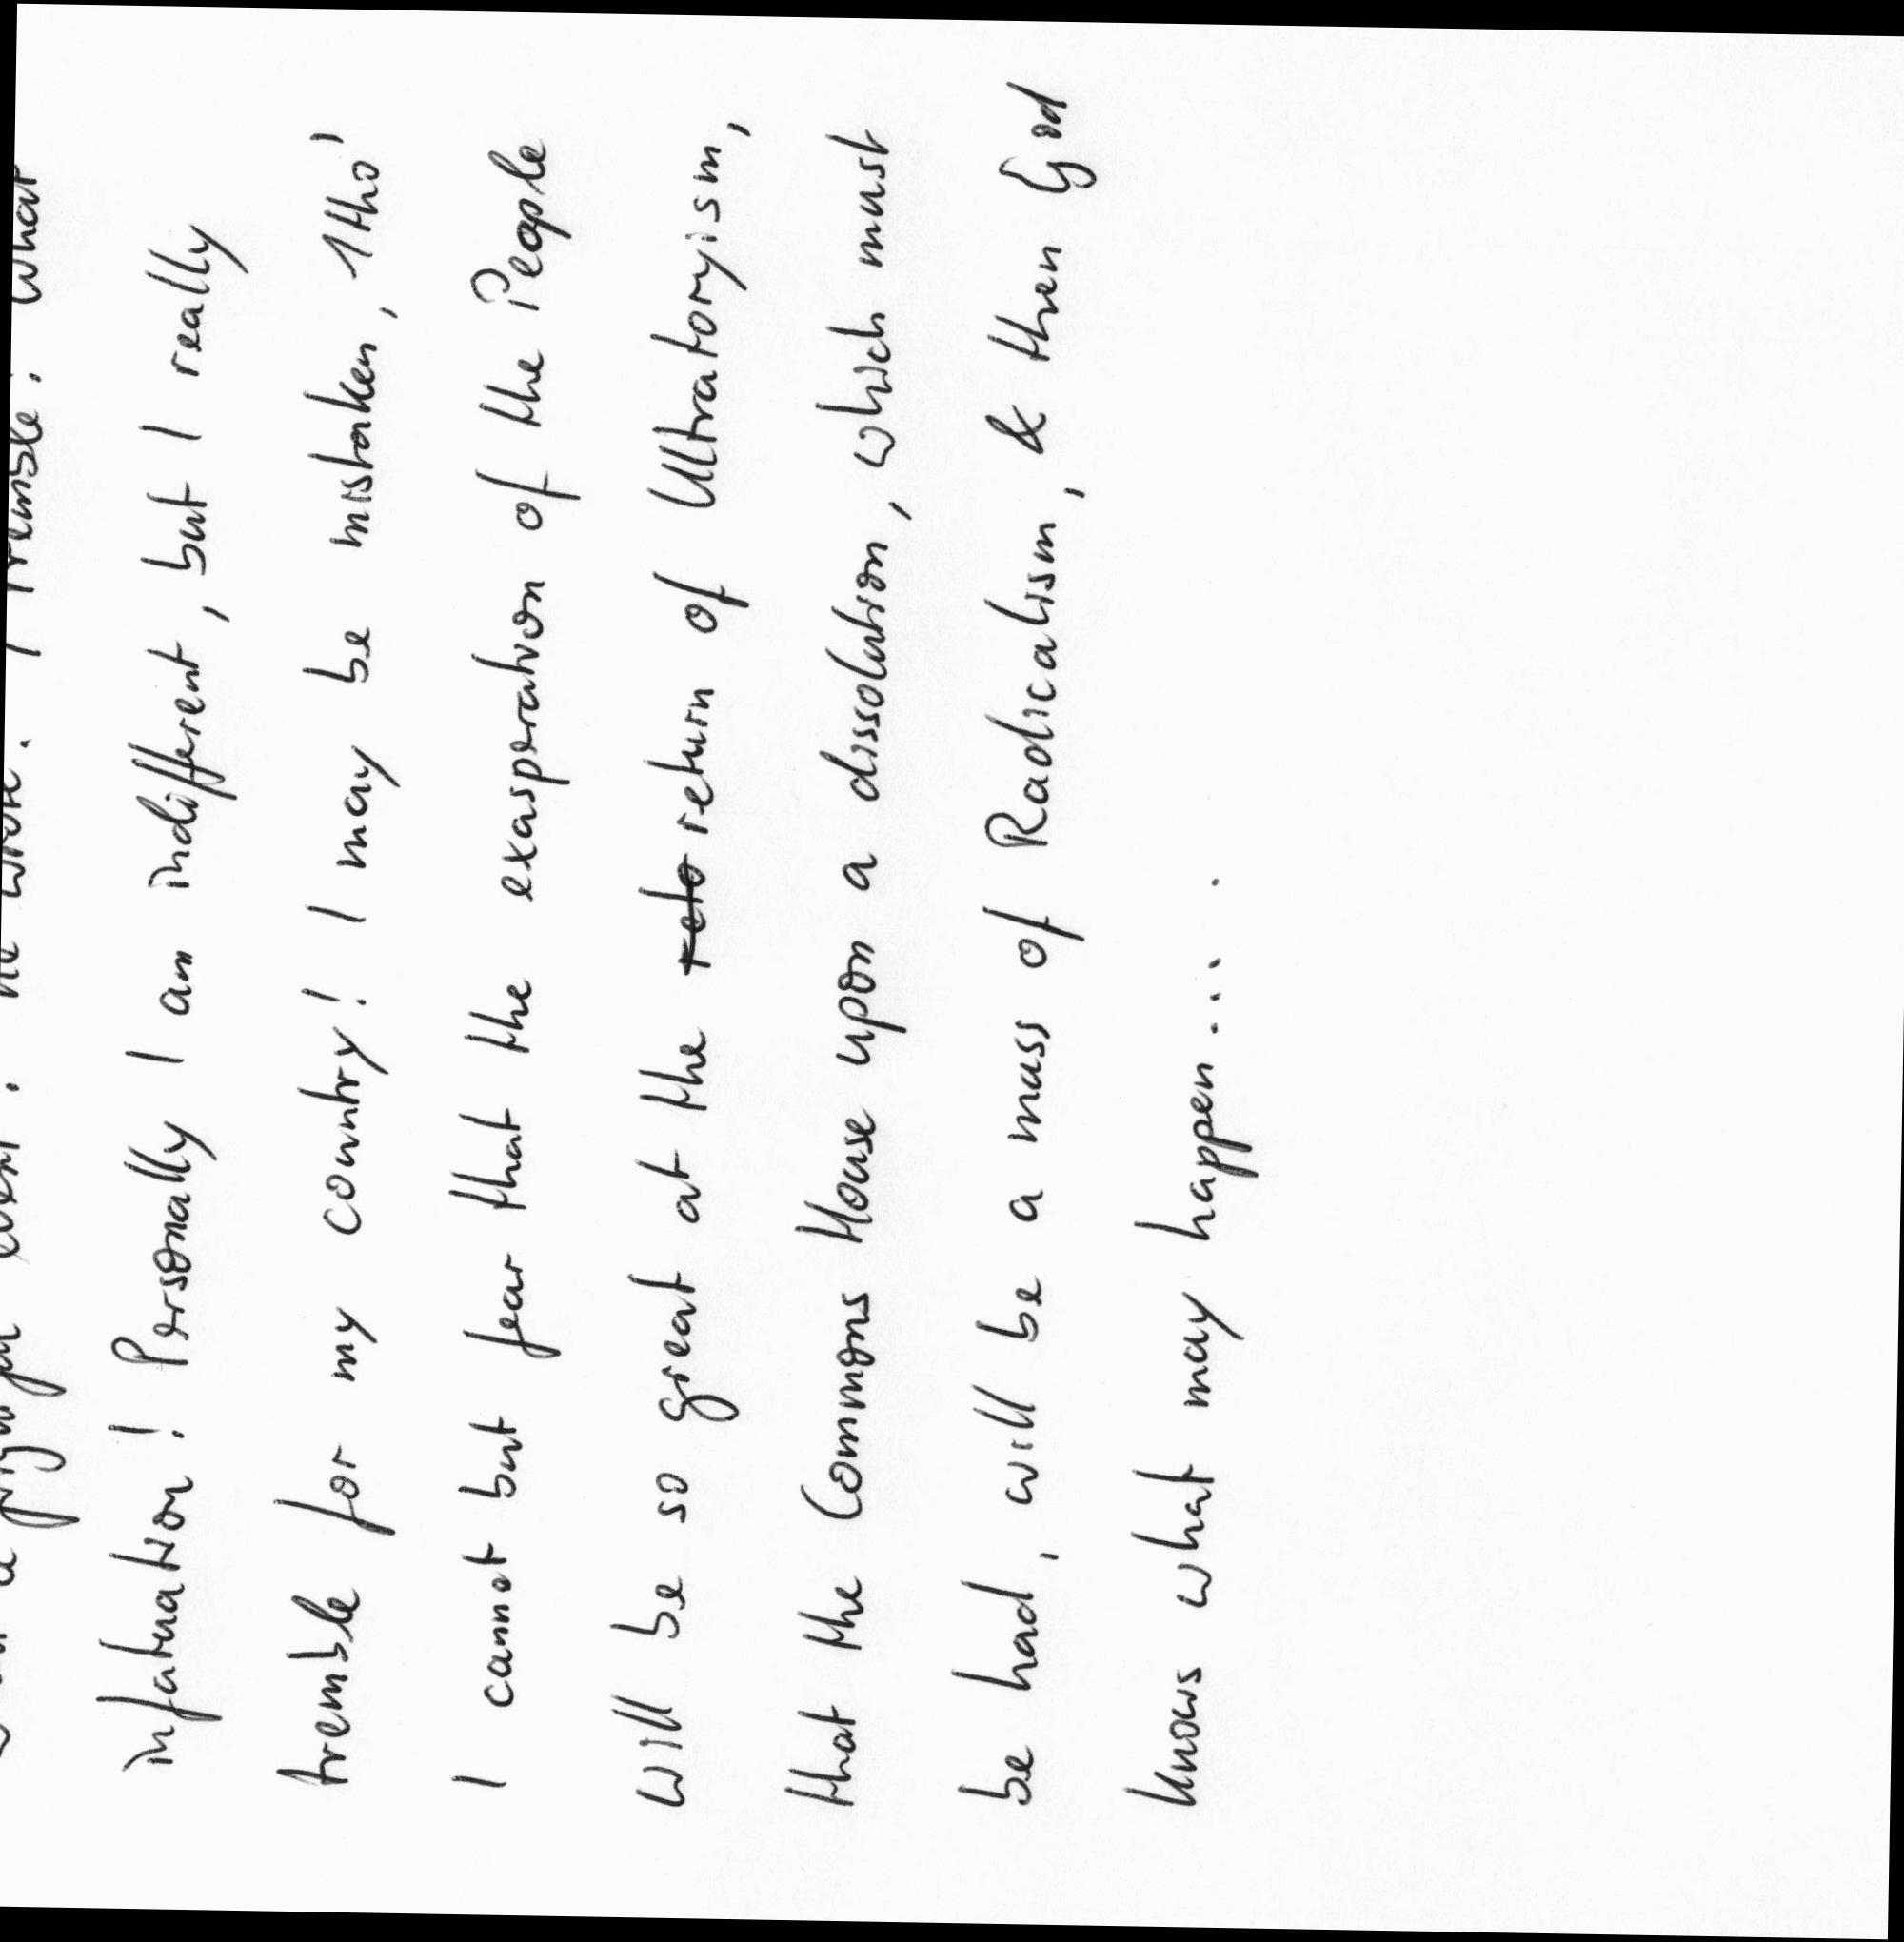 he wrote. I tremble: what
infatuation! Personally I am indifferent, but I really
tremble for my country! I may be mistaken, 1tho'
I cannot but fear that the exasperation of the People
will be so great at the return of Ultratoryism,
that the Commons House upon a dissolution, which must
be had, will be a mass of Radicalism, & then God
knows what may happen.... .